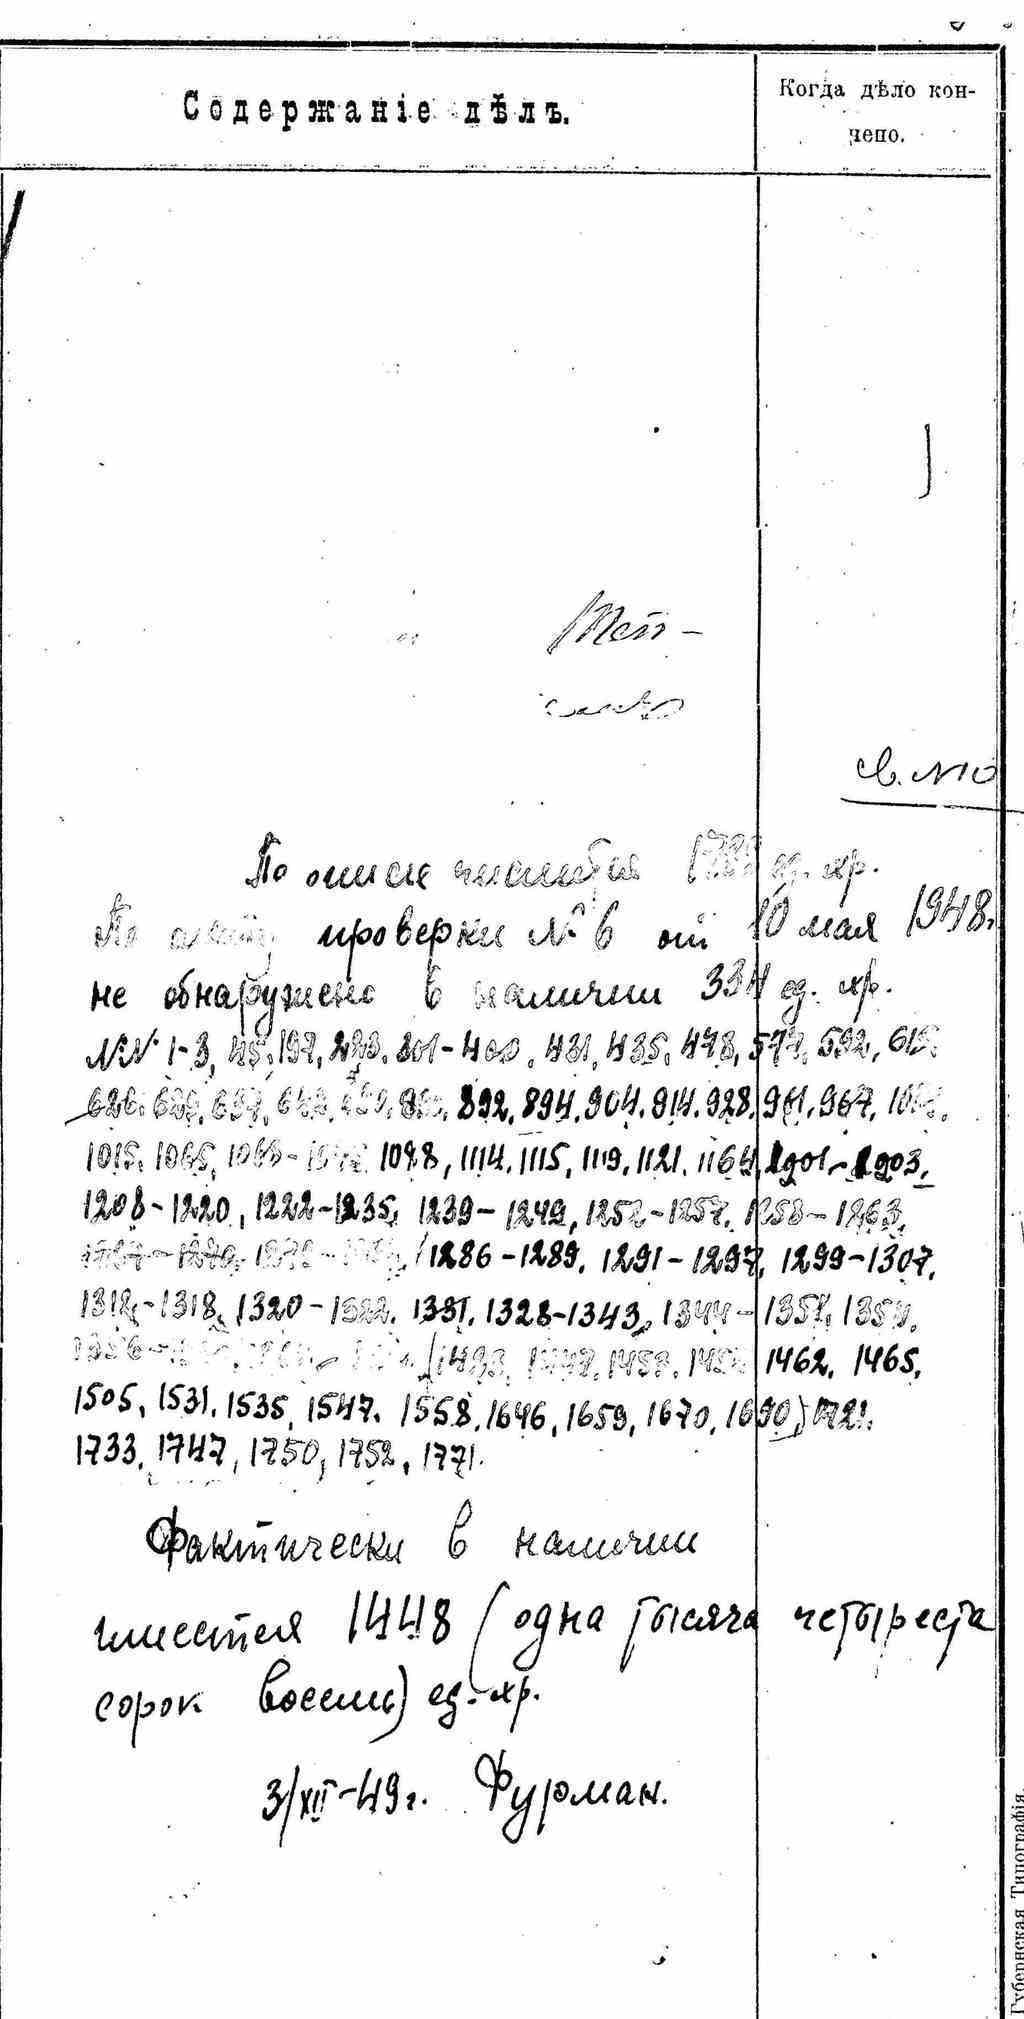 Содержаніе дѣлъ.
Когда дѣло кон-
чено.
св. №10
По описи числится ед. хр.
По акту проверки № 6 от 10 мая 1948г.
не обнаружено в наличии 334 ед. хр.
№№ 1-3, 45, 197, 301-400, 431, 435, 478, 577, 592, 615,
892, 894, 904, 914, 928, 961, 967,
1015, 1065, 1088, 1114, 1115, 1119, 1121, 1164, 1201-1203,
1208-1220, 1222-1235, 1239-1249, 1252-1257, 1258-1263,
1286-1289, 1291-1297, 1299-1307,
1312-1318, 1320-1322, 1331, 1328-1343, 1344-1357,
1462, 1465,
1505, 1531, 1535, 1547, 1558, 1646, 1659, 1670, 1690, 1721,
1733, 1747, 1750, 1752, 1771.
Фактически в наличии
имеется 1448 (одна тысяча четыреста
сорок восемь) ед. хр.
3/XII-49г. Фурман.
Губернская Типографія.